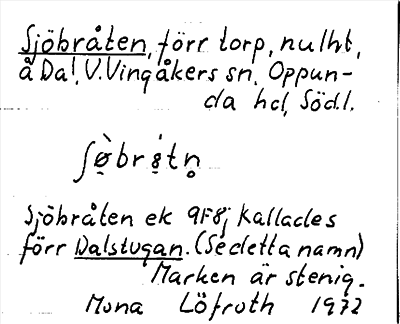 Sjöbråten, förr torp, nu lht,
å Dal, V. Vingåkers sn. Oppun-
da hd, Södl.
Sjöbråten ek 9F8j Kallades
förr Dalstugan. (Se detta namn)
Marken är stenig.
Mona Löfroth 1972